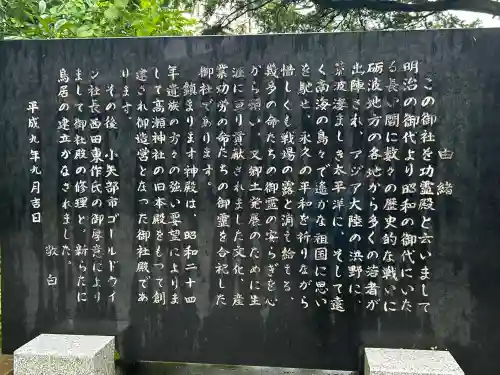 由緒
この御社を功霊殿と云いまして
明治の御代より昭和の御代にいた
る長い間に数々の歴史的な戦いに
砺波地方の各地から多くの若者が
出陣され、アジア大陸の浜野に、
荒波凄まじき太平洋に、そして遠
く南海の島々で遙かな祖国に思い
を馳せ、永久の平和を祈りながら
惜しくも戦場の露と消え給もる、
幾多の命たちの御霊の安らぎを心
から願い、又郷土発展のために生
涯に亘り貢献されました文化、産
業功労の命たちの御霊を合祀した
御社であります。
鎮ります神殿は、昭和二十四
年遺族の方々の強い要望によりま
して高瀬神社の旧本殿をもつて創
建され御造営となった御社殿であ
ります。
その後、小矢部市ゴールドウイ
ン社長西田東作氏の御厚意により
まして御社殿の修理と、新らたに
鳥居の建立がなされました。
敬白
平成九年九月吉日